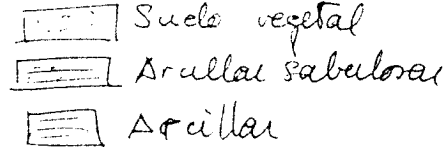 Suelo vegetal
Arcillas sabulosas
Arcillas